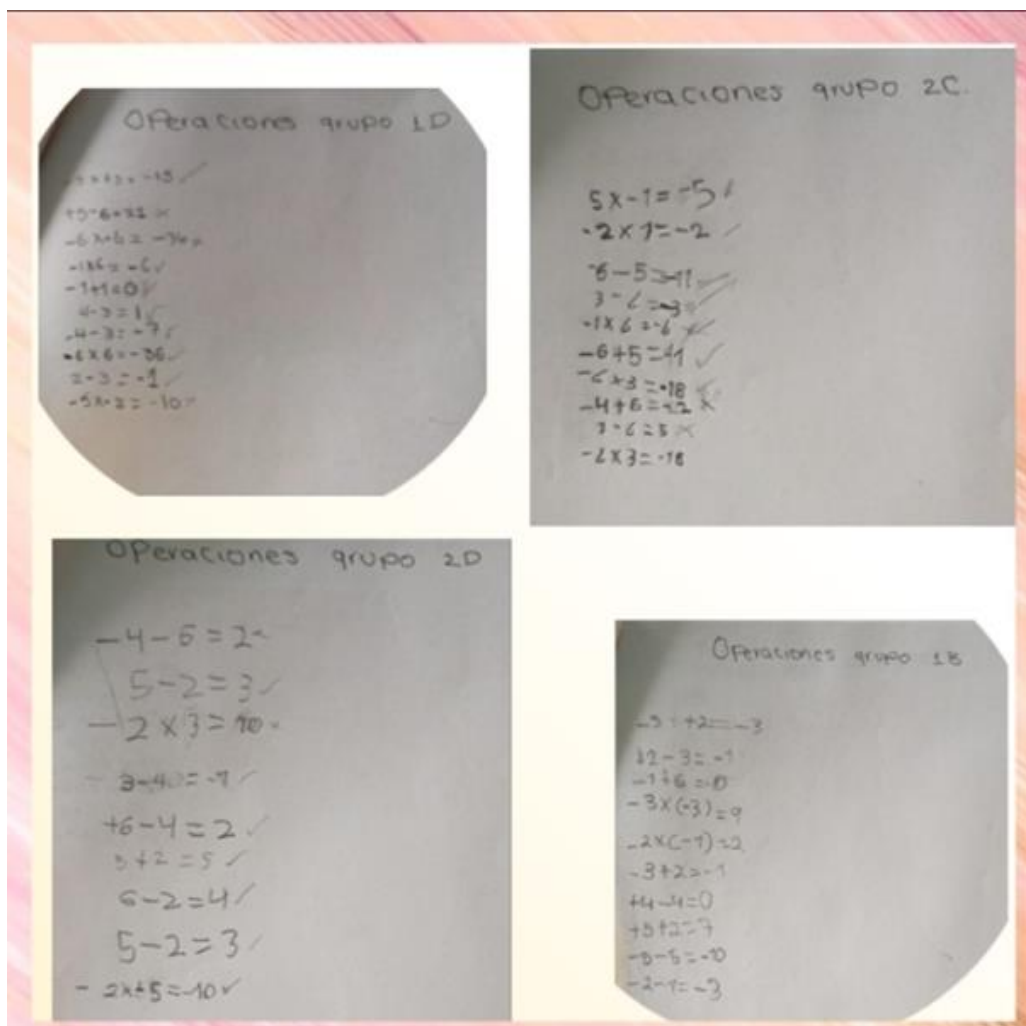 Operaciones grupo 1D
+5-6+11 ×
-1x6 = -6 ✓
-1+1=0 ✓
4-3=1 ✓
-4-3=-7 ✓
-6x6=-36 ✓
2-3=-1 ✓
Operaciones grupo 2C.
5x-1=-5 ✓
-2x1=-2 ✓
-6-5=-11 ✓
-6+5=11 ✓
-6x3=-18
-4+6=-2 ×
1-6=5 ×
-6x3=-18
Operaciones grupo 2D
-4-6=2
5-2=3 ✓
-2x3=10
3-4=-1 ✓
+6-4=2 ✓
3+2=5 ✓
6-2=4 ✓
5-2=3 ✓
-2x+5=-10 ✓
Operaciones grupo 1B
+2-3=-1
-3x(-3)=9
-2x(-1)=2
-3+2=-1
+4-4=0
+5+2=7
-5-5=-10
-2-1=-3